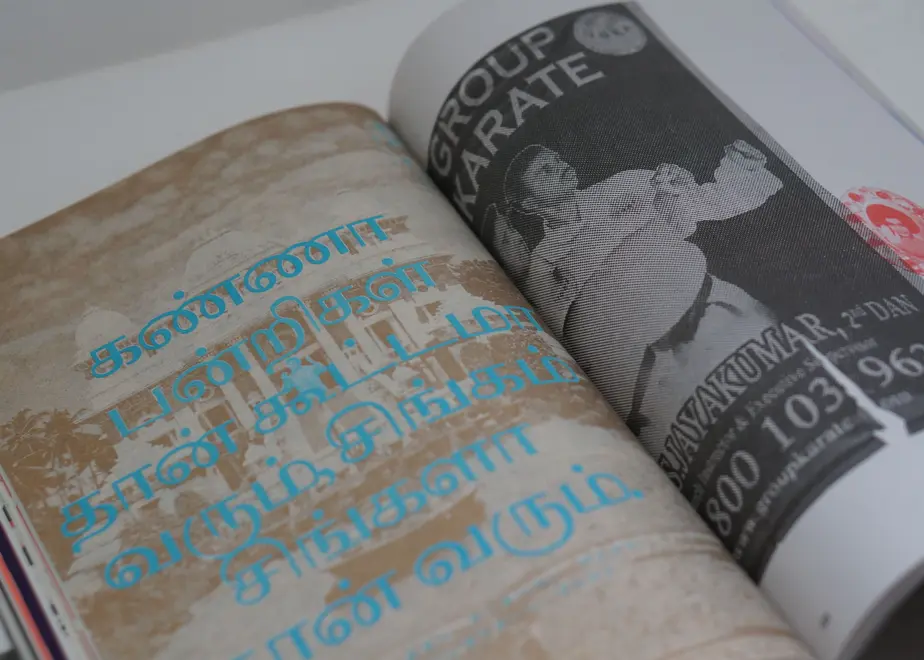 கண்ணா
பன்றிகள்
தான் கூட்டமா
வரும், சிங்கம்
சிங்களா
தான் வரும்.
GROUP
KARATE
IJAYAKUMAR, 2nd DAN
Instructor & Executive Supervisor
800 103 962
www.groupkarate.